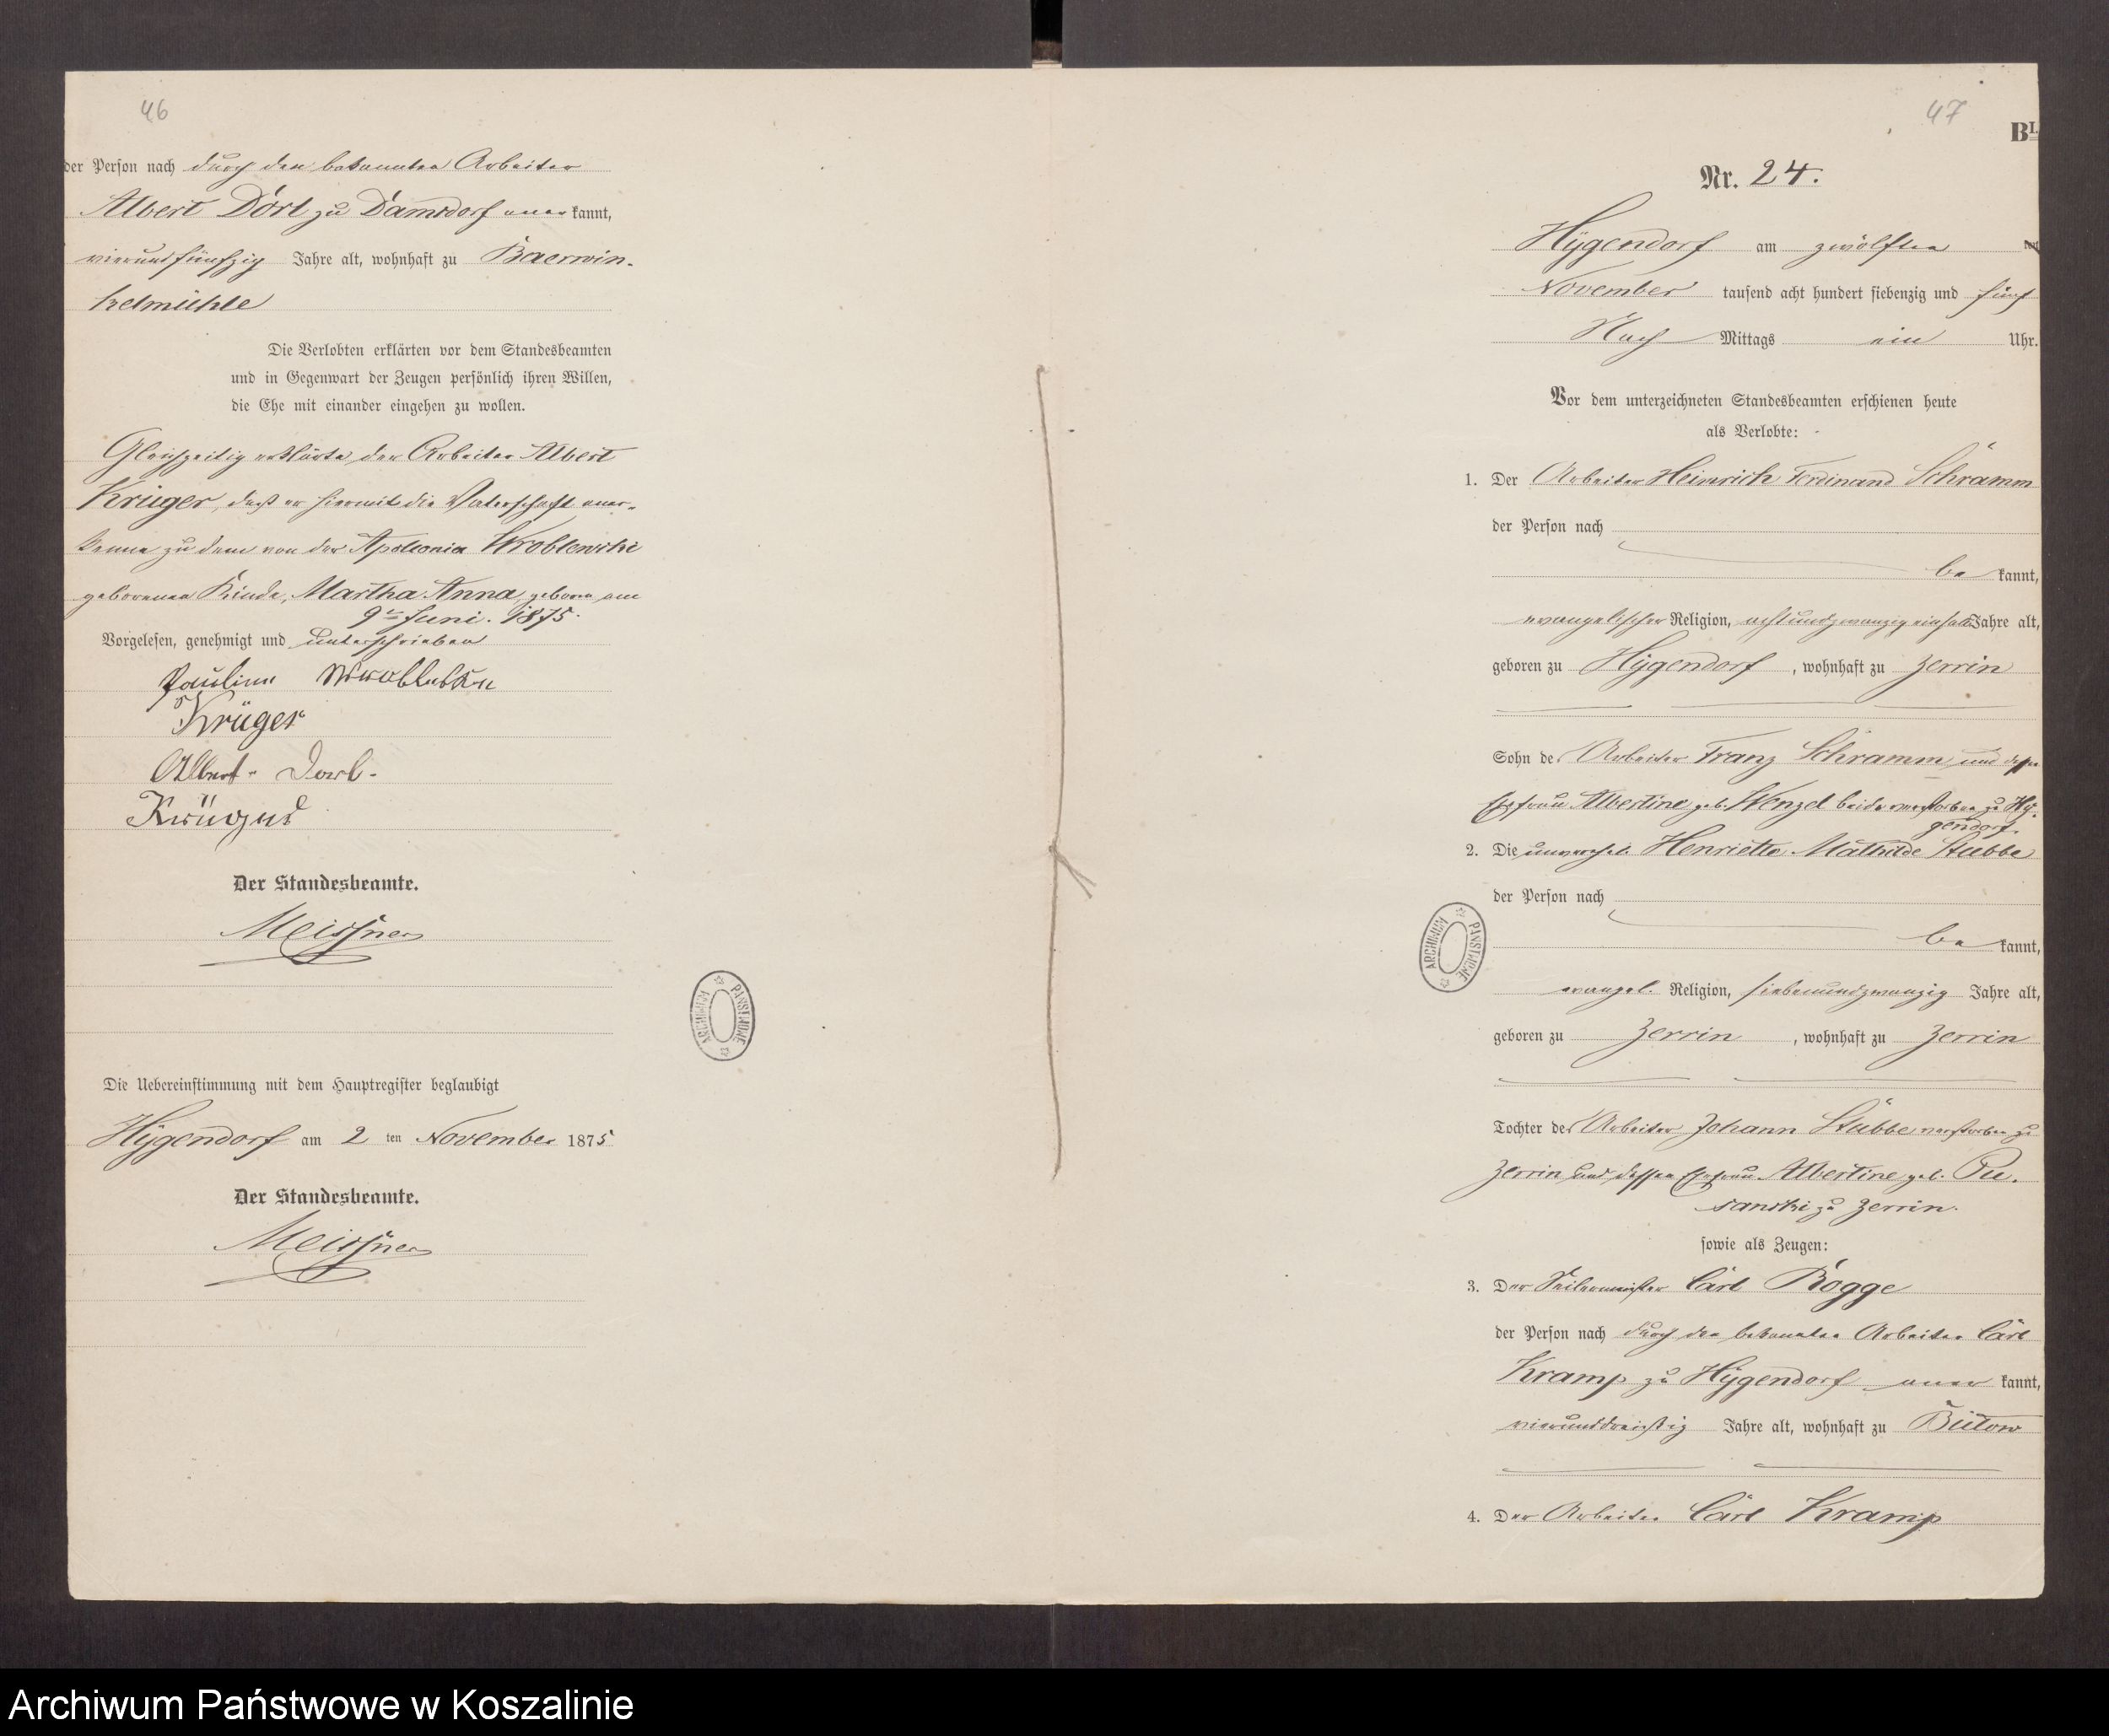 46
der Person nach durch den bekannten Arbeiter
Albert Dorl zu Damsdorf aner kannt,
vierundfünfzig Jahre alt, wohnhaft zu Baerwin-
kelmühle
Die Verlobten erklärten vor dem Standesbeamten
und in Gegenwart der Zeugen persönlich ihren Willen,
die Ehe mit einander eingehen zu wollen.
Gleichzeitig erklärte der Arbeiter Albert
Krüger, daß er hiermit die Vaterschaft aner-
kenne zu dem von der Apollonia Wroblewski
geborenen Kinde, Martha Anna, geboren am
9ten Juni. 1875.
Vorgelesen, genehmigt und unterschrieben
Pauline
Krüger
Albert Dorl
Der Standesbeamte.
Meissner
ARCHIWUM PAŃSTWOWE
Die Uebereinstimmung mit dem Hauptregister beglaubigt
Hygendorf am 2 ten November 1875
Der Standesbeamte.
Meissner
47
B
Nr. 24.
Hygendorf am zwölften
November tausend acht hundert siebenzig und fünf
Nach Mittags ein Uhr.
Vor dem unterzeichneten Standesbeamten erschienen heute
als Verlobte:
1. Der Arbeiter Heinrich Ferdinand Schramm
der Person nach
be kannt,
evangelischer Religion, achtundzwanzig Jahre alt,
geboren zu Hygendorf, wohnhaft zu Zerrin
Sohn des Arbeiter Franz Schramm und dessen
Ehefrau Albertine geb. Wenzel beide verstorben zu Hy-
gendorf.
2. Die unverehel. Henriette Mathilde Stubbe
der Person nach
be kannt,
evangel. Religion, siebenundzwanzig Jahre alt,
geboren zu Zerrin, wohnhaft zu Zerrin
ARCHIWUM PAŃSTWOWE
Tochter des Arbeiter Johann Stubbe verstorben zu
Zerrin und dessen Ehefrau Albertine geb. Pu-
sanski zu Zerrin.
sowie als Zeugen:
3. Der Seilermeister Carl Rogge
der Person nach durch den bekannten Arbeiter Carl
Kramp zu Hygendorf aner kannt,
vierunddreißig Jahre alt, wohnhaft zu Bütow
4. Der Arbeiter Carl Kramp
Archiwum Państwowe w Koszalinie